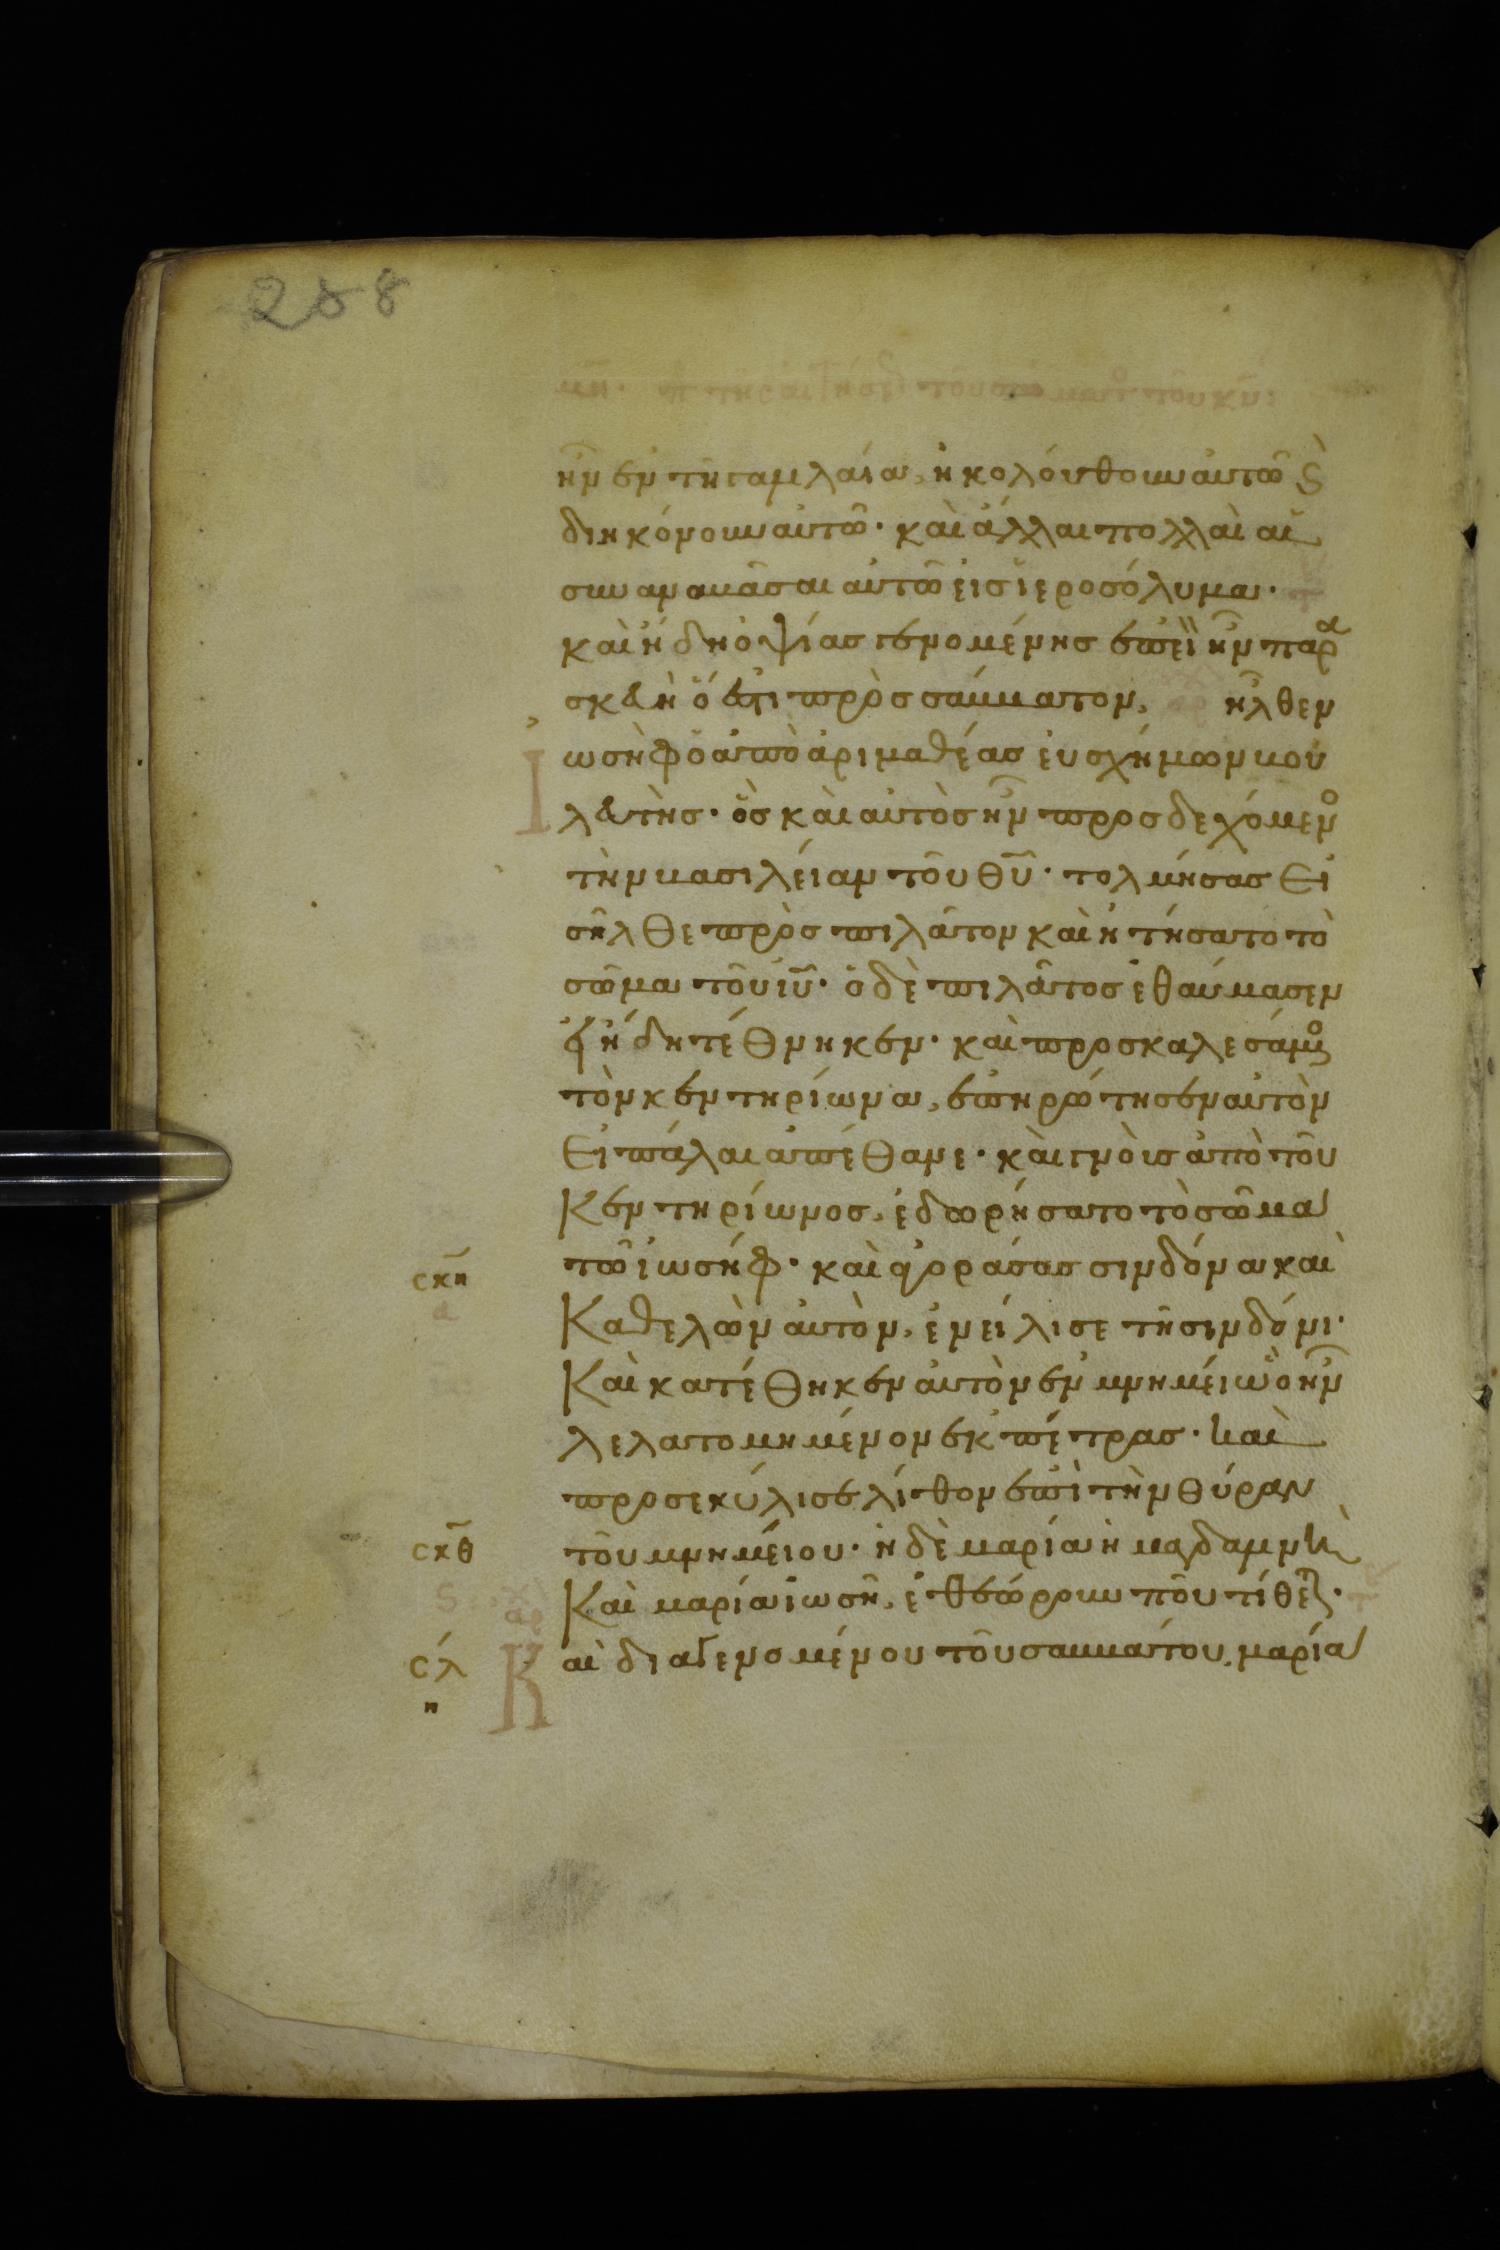 288
μη. περὶ τῆς αἰτήσεως τοῦ σώματος τοῦ κυ:
ἦν ἐν τῆ γαλιλαία, ἠκολούθουν αὐτῶ κ(αὶ)
διηκόνουν αὐτῶ· καὶ ἄλλαι πολλαὶ αἱ
συναναβᾶσαι αὐτῶ εἰς ἱεροσόλυμα·
καὶ ἤδη ὀψίας γενομένης ἐπεὶ ἦν παρα
σκευὴ ὅ ἐστι πρὸς σάββατον, ἦλθεν
Ἰωσὴφ ὁ ἀπὸ ἀριμαθέας εὐσχήμων βου
λευτὴς· ὃς καὶ αὐτὸς ἦν προσδεχόμενο
τὴν βασιλείαν τοῦ θυ· τολμήσας εἰ
σῆλθε πρὸς πιλᾶτον καὶ ἠτήσατο τὸ
σῶμα τοῦ ιυ· ὁ δὲ πιλᾶτος ἐθαύμασεν
εἰ ἤδη τέθνηκεν· καὶ προσκαλεσάμενος
τὸν κεντηρίωνα, ἐπηρώτησεν αὐτὸν
εἰ πάλαι ἀπέθανε· καὶ γνοὺς ἀπὸ τοῦ
κεντηρίωνος, ἐδωρήσατο τὸ σῶμα
τῶ ἰωσήφ· καὶ ἀγοράσας σινδόνα καὶ
σκη
α
καθελὼν αὐτὸν, ἐνείλισε τῆ σινδόνι·
καὶ κατέθηκεν αὐτὸν ἐν μνημείω ὃ ἦν
λελατομημένον ἐκ πέτρας· καὶ
προσεκύλισε λίθον ἐπὶ τὴν θύραν
σκθ τοῦ μνημείου· ἡ δὲ μαρία ἡ μαγδαληνὴ
καὶ μαρία ἰωσῆ, ἐθεώρουν ποῦ τίθεται·
σλ
η
Καὶ διαγενομένου τοῦ σαββάτου, μαρία